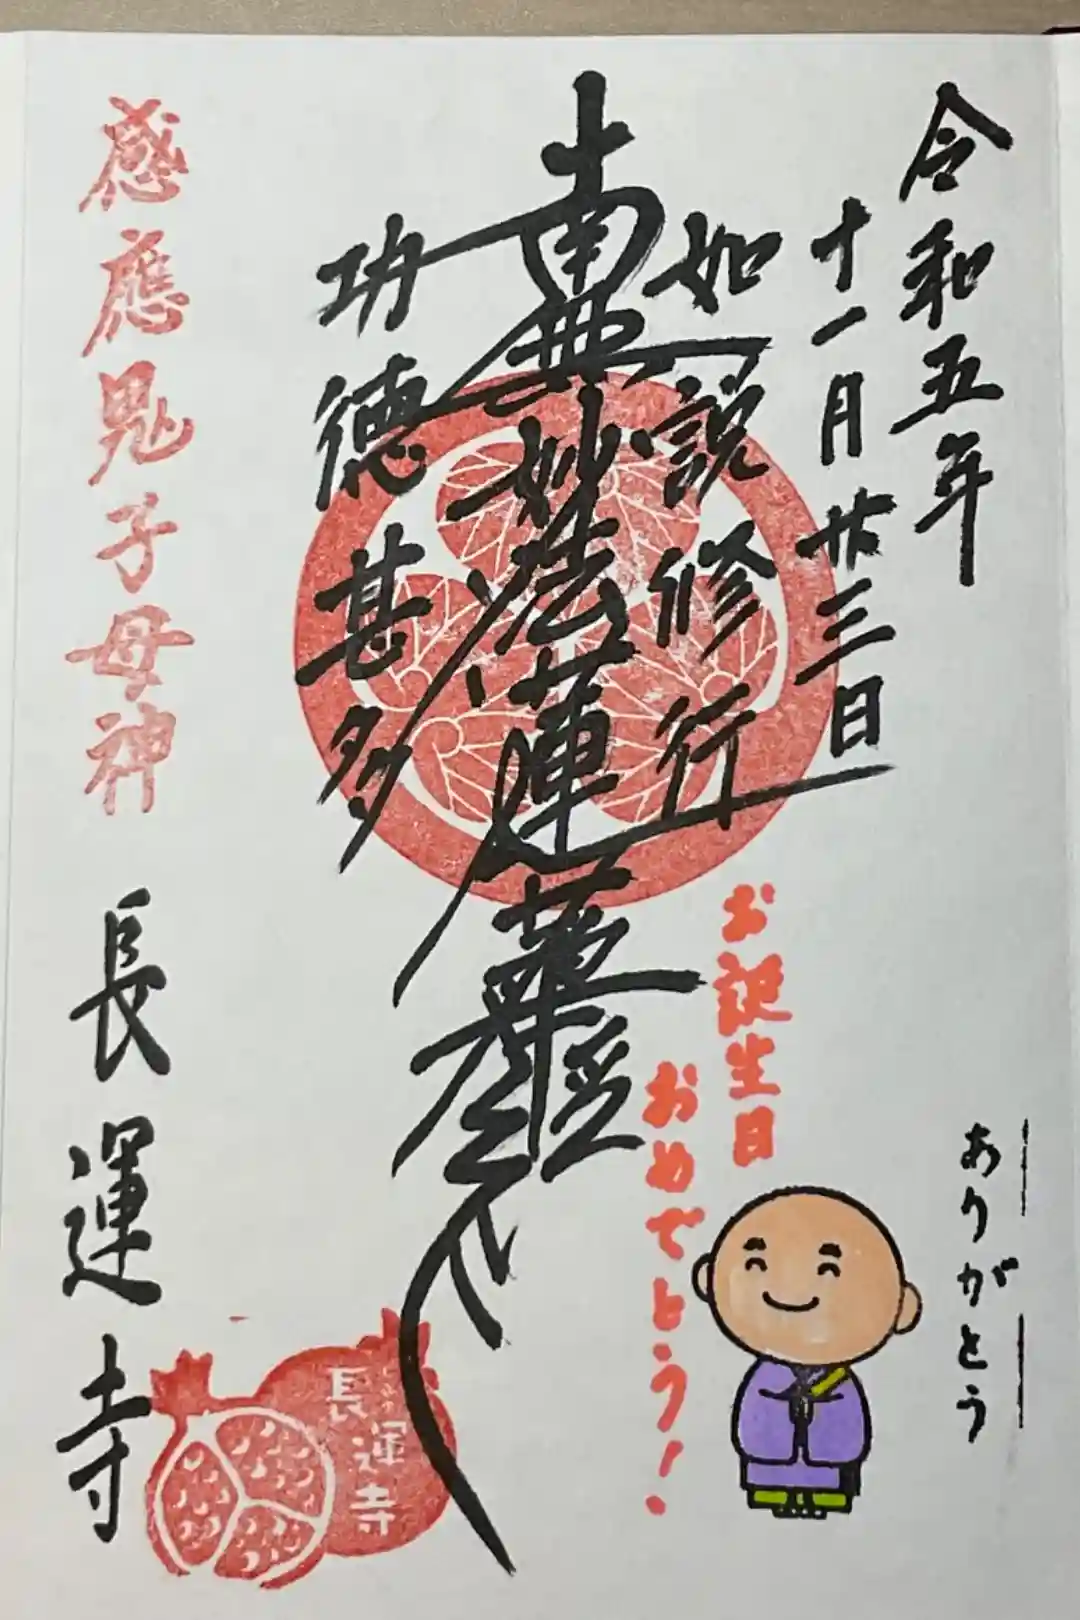 令和五年
十一月廿三日
ありがとう
如説修行
南無妙法蓮華経
功徳甚多
お誕生日
おめでとう!
感應鬼子母神
長運寺
長運寺